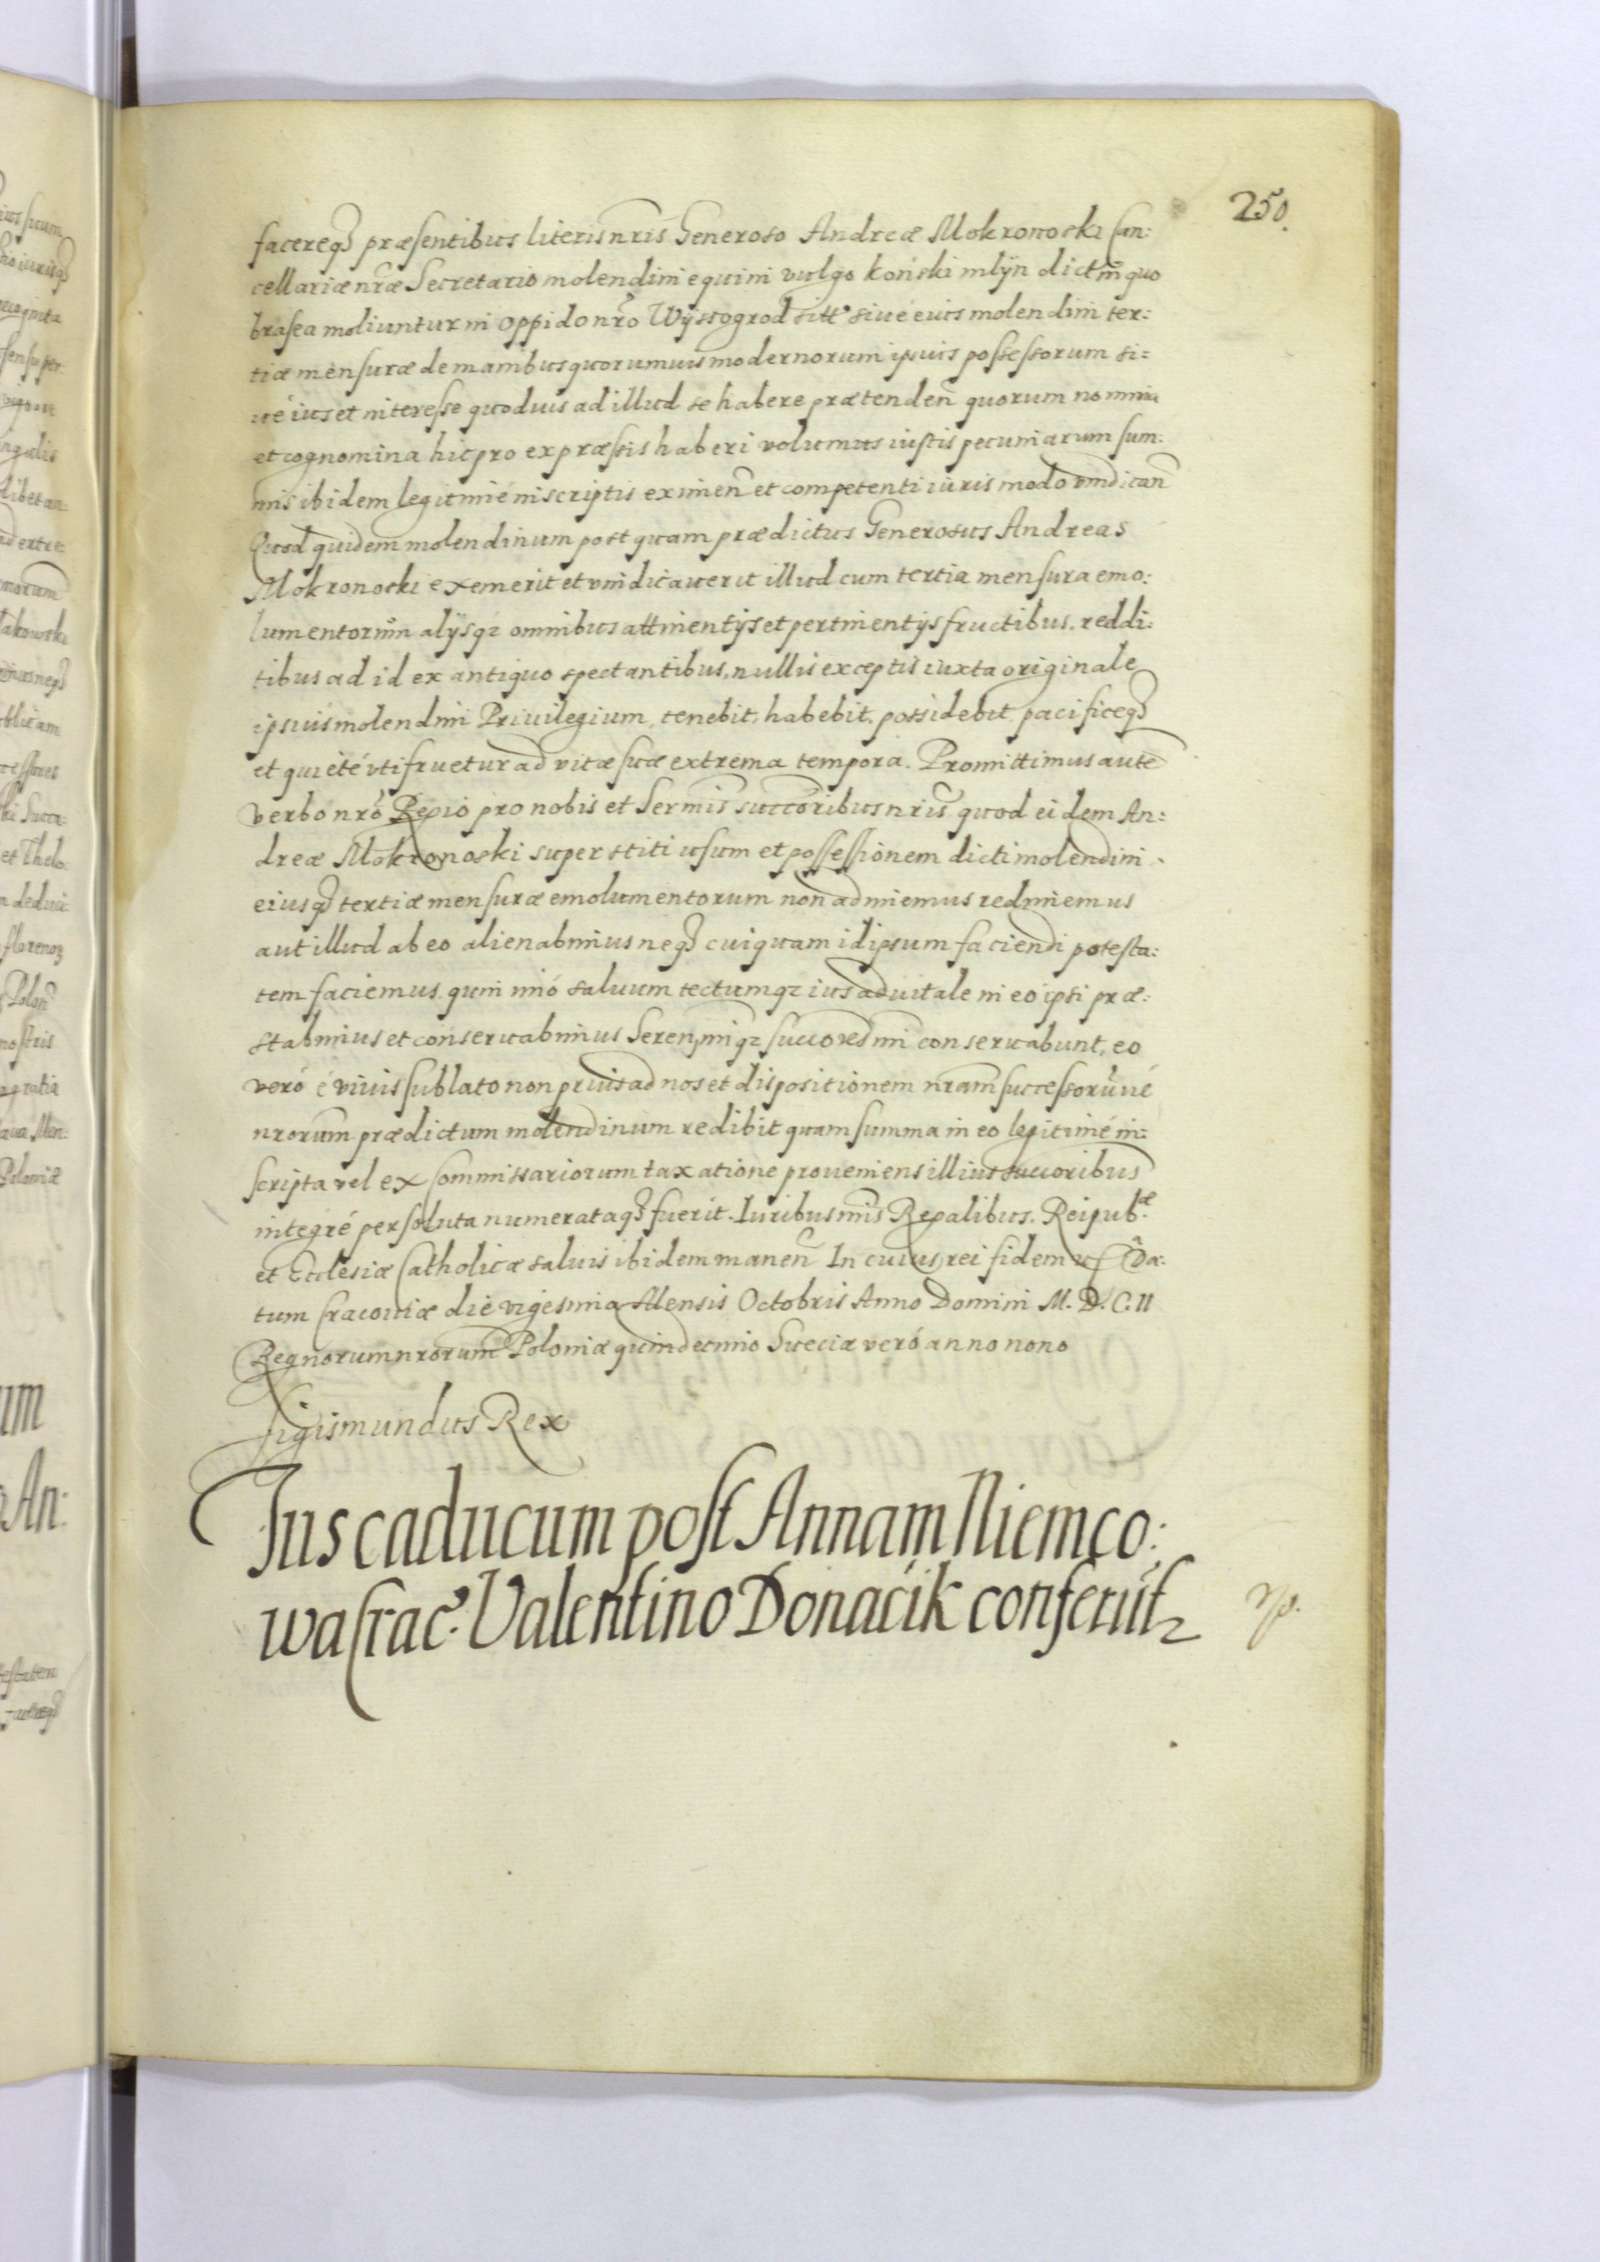 250.
facereq₃ præsentibus literis nr̃is Generoso Andreæ Mokronoski Can:
cellariæ nr̃æ Secretario molendini equini vulgo koński mlÿn dictm̃ quo
brasea moliuntur in oppido nr̃o Wÿssogrod sitt° siué eius molendini ter:
tiæ mensuræ de manibus quorumuis modernorum ipsius possessorum si=
ué ius et interesse quoduis ad illud se habere prætendeñ quorum nomina
et cognomina hic pro expræssis haberi volumus iustis pecuniarum sum:
mis ibidem legitimé inscriptis eximeñ et competenti iuris modo vindicañ
Quod quidem molendinum postquam prædictus Generosus Andreas
Mokronoski exemerit et vindicauerit illud cum tertia mensura emo:
lumentorum̃ alÿsq₃ omnibus attinentÿs et pertinentÿs fructibus. reddi:
tibus ad id ex antiquo spectantibus, nullis exceptis iuxta originale
ipsius molendini Priuilegium, tenebit, habebit, possidebit, pacificeq₃
et quieté vtifruetur ad vitæ suæ extrema tempora. Promittimus autẽ
verbo nr̃o Regio pro nobis et Sermis̃ succoribus nr̃is quod eidem An:
dreæ Mokronoski superstiti usum et possessionem dicti molendini
eiusq₃ tertiæ mensuræ emolumentorum non adimemus redimemus
aut illud ab eo alienabimus neq₃ cuiquam id ipsum faciendi potesta:
tem faciemus. quin imó saluum tectumq₃ ius aduitale in eo ipsi præ:
stabimus et conseruabimus Serenmiq₃ succores nr̃i conseruabunt, eo
veró é viuis sublato non prius ad nos et dispositionem nram̃ successorum̃ué
nrorum̃ prædictum molendinum redibit quam summa in eo legitimé in:
scripta vel ex Commissariorum taxatione proueniens illius succoribus̃
integré persoluta numerataq₃ fuerit. Iuribus nr̃is Regalibus. Reipubᵃᵉ
et Ecclesiæ Catholicæ saluis ibidem maneñ In cuius rei fidem etc̃ Da:
tum Cracouiæ die vigesima Mensis Octobris Anno Domini M. D. C. II
Regnorum nrorum̃ Poloniæ quindecimo Sueciæ veró anno nono
Sigismundus Rex
Jus caducum post Annam Niemco:
wa Crac̃. Valentino Donacik conferut̃₂